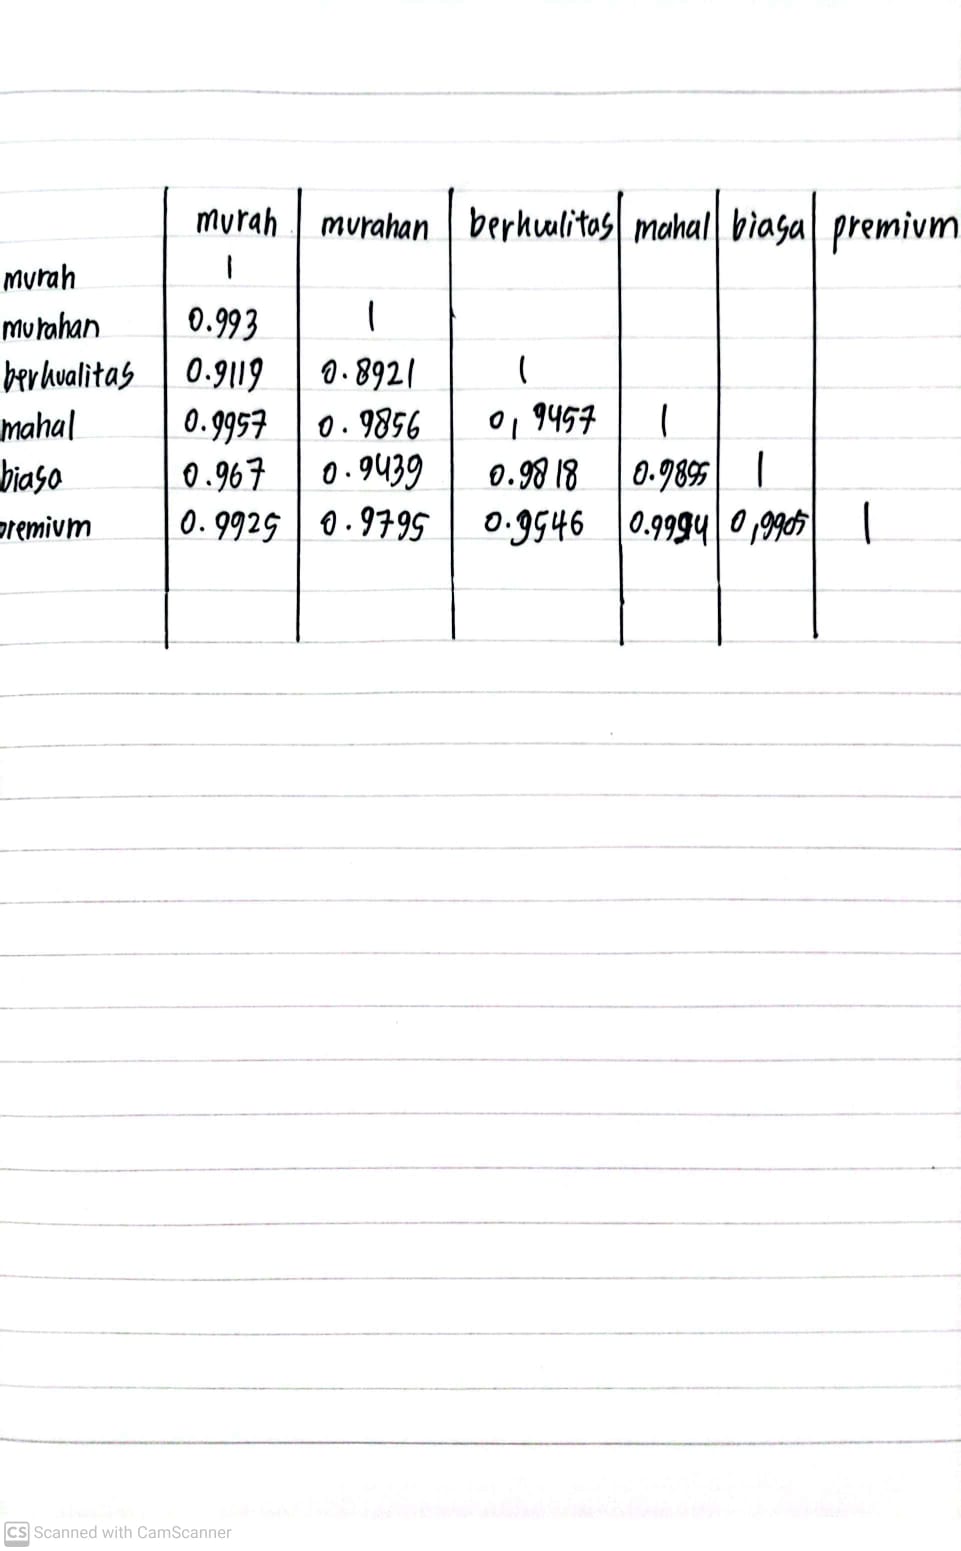 murah murahan berkualitas mahal biasa premium
murah 1
murahan 0.993 1
berkualitas 0.9119 0.8921 1
mahal 0.9957 0.9856 0,9457 1
biasa 0.967 0.9439 0.9818 0.9895 1
premium 0.9925 0.9795 0.9546 0.9994 0,9905 1
CS Scanned with CamScanner